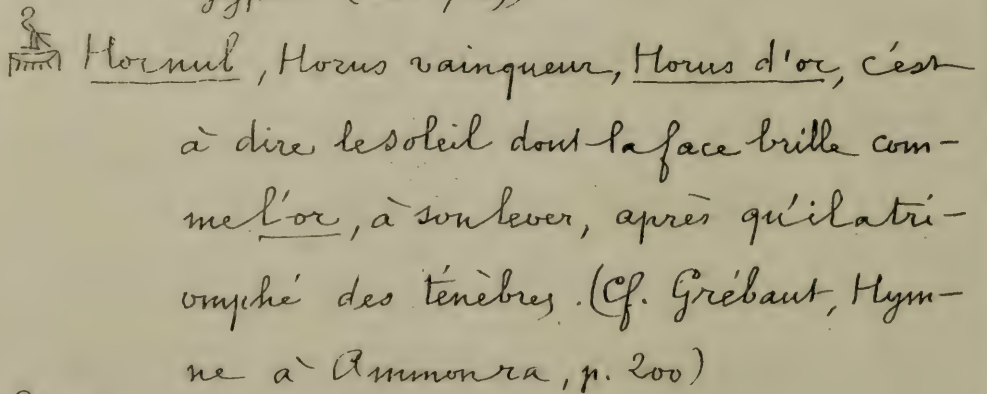 Hornub, Horus vainqueur, Horus d'or, c'est
à dire le soleil dont la face brille com-
me l'or, à son lever, après qu'il a tri-
omphé des ténèbres. (Cf. Grébaut, Hym-
ne à Ammonra, p. 200)